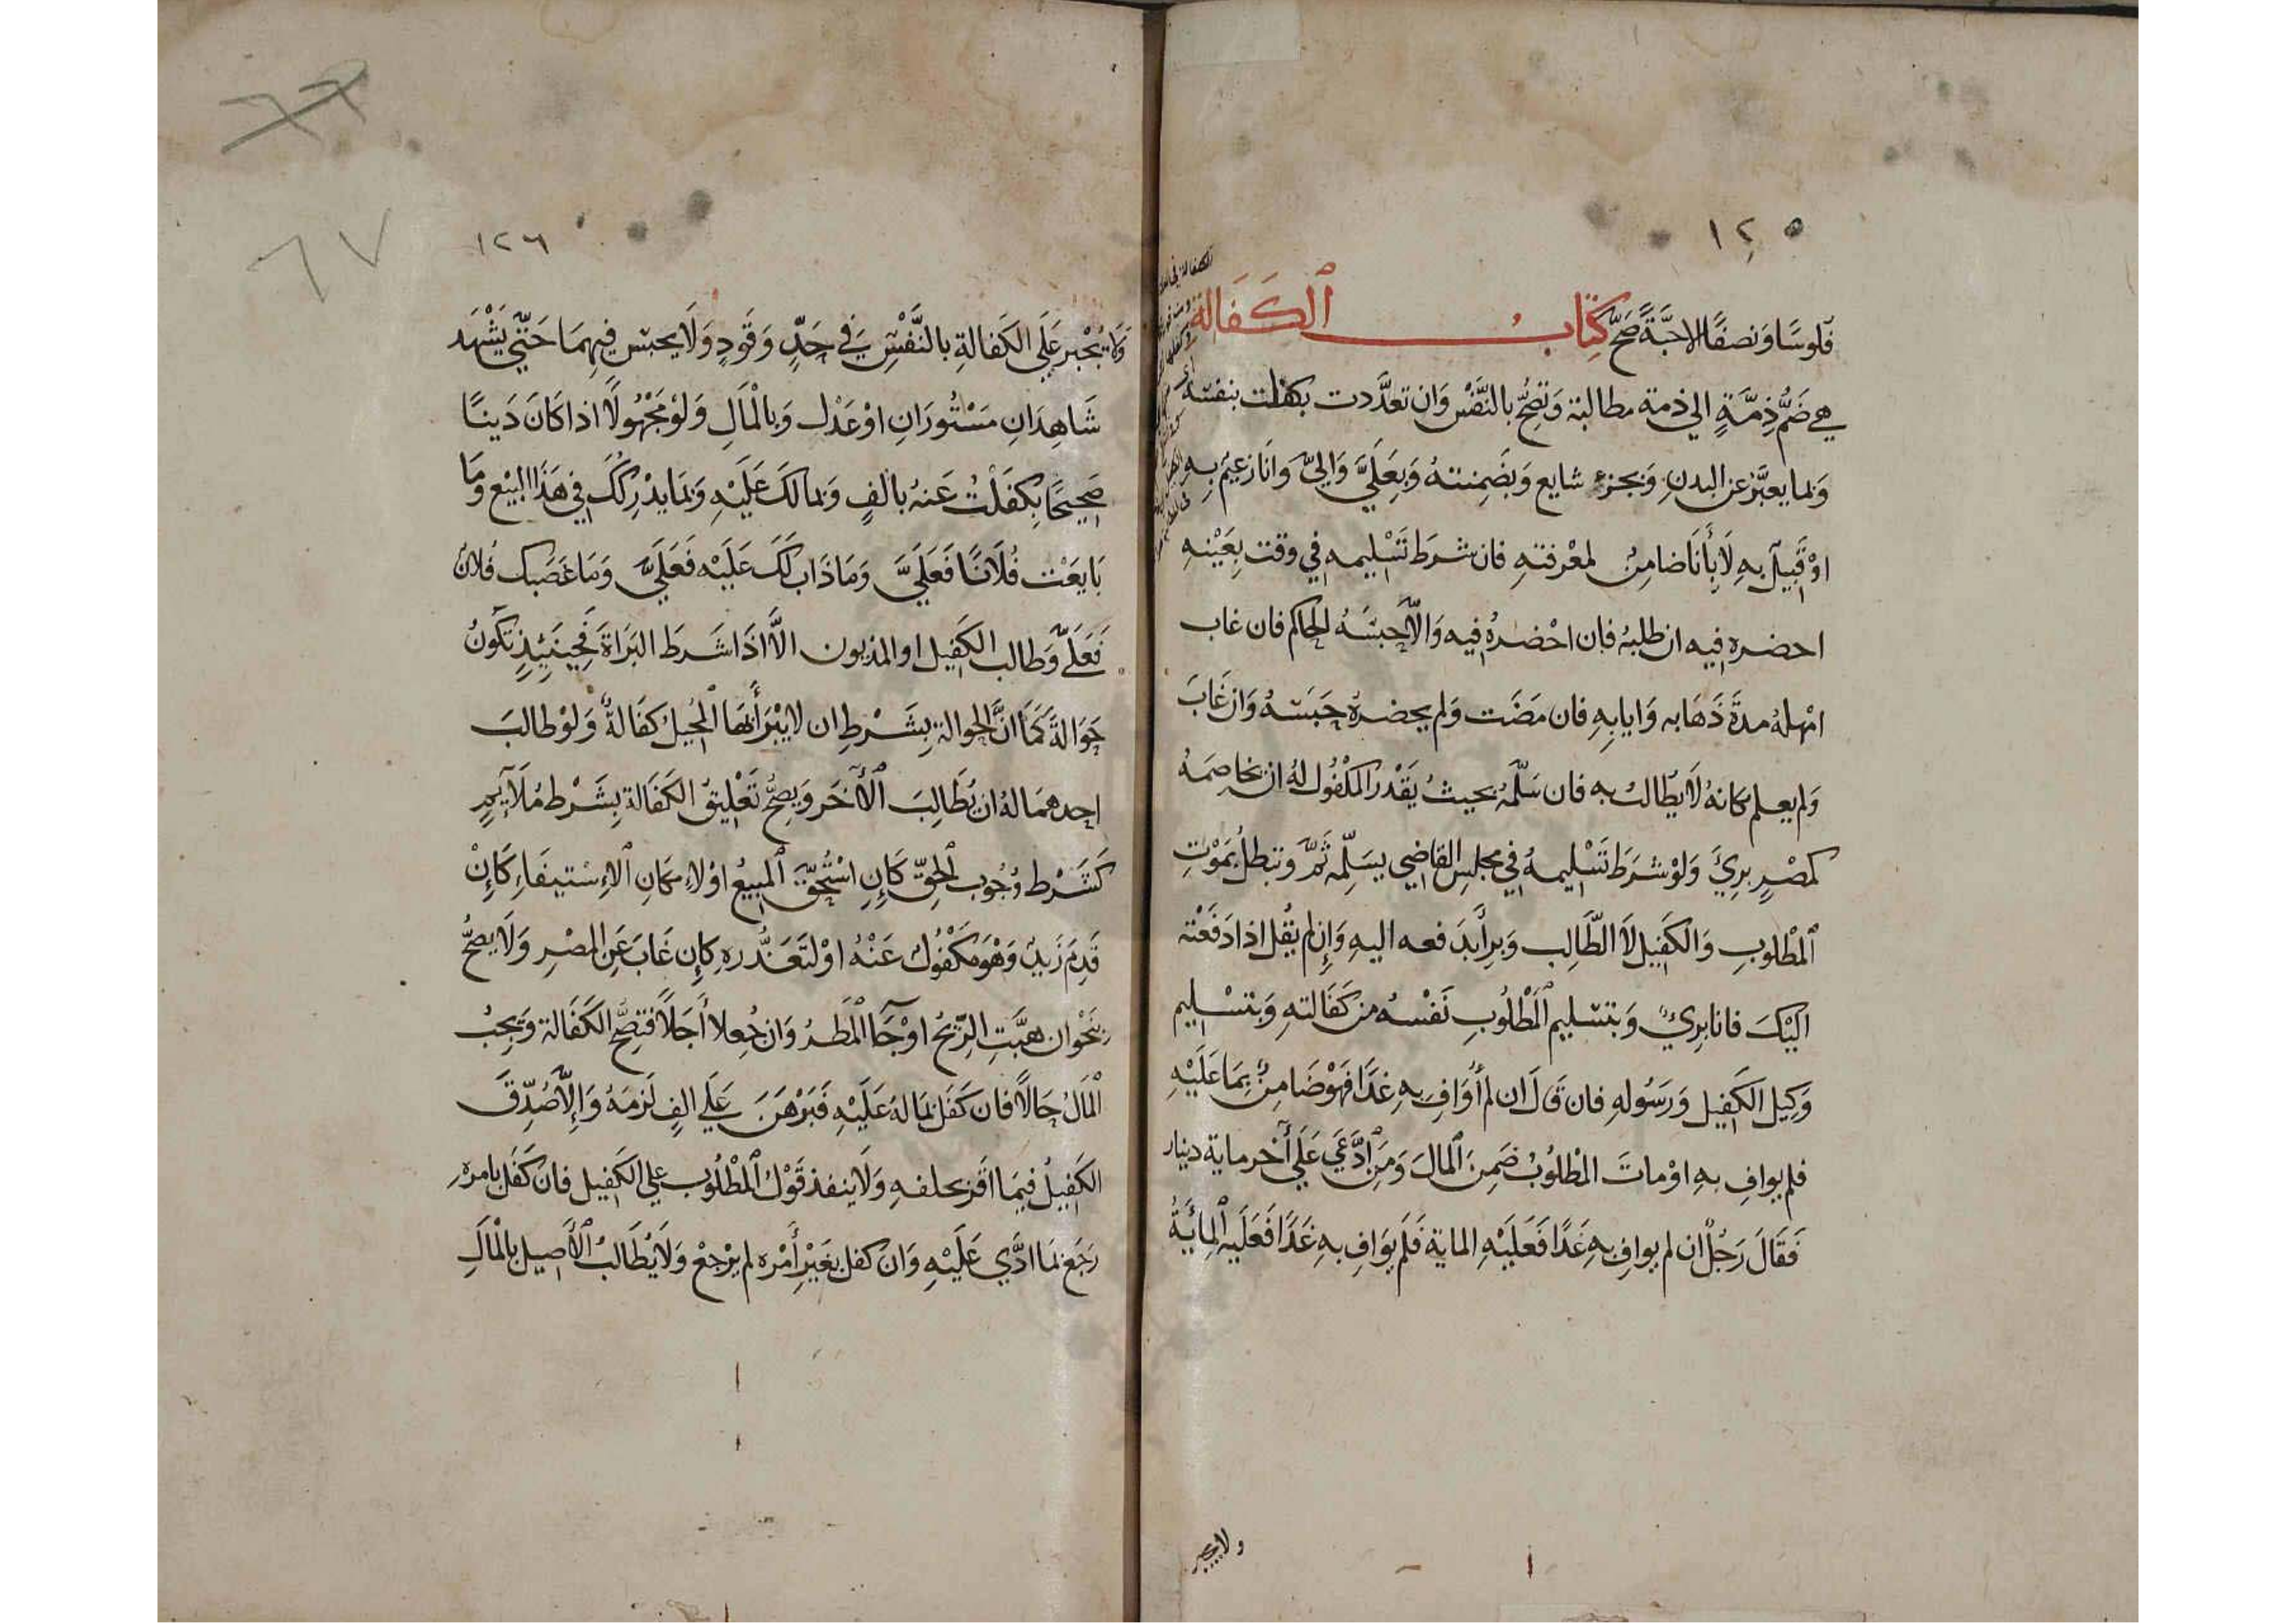 ١٢٥
فلوسًا ونصفًا الاحبَّةً صَحَّ كتابُ الكَفَالة
هي ضَمُّ ذِمَّةٍ الي ذمة مطالبة وَتَصِحُّ بالنَّفْس وَان تعدَّدت بكفلت بنفسه
وَبما يعبَّر عن البدن وَبجزءٍ شايع وَبضَمِنتهُ وَبعَلَيَّ وَاليَّ وانَا زعيم بِهِ
اوْ قَبِيل به لَا بأَنَا ضامِنٌ لمعْرفتهِ فان شرَط تَسْليمه في وقت بِعَيْنِهِ
احضره فيه ان طلبهُ فان احْضرهُ فيه وَالَّا حبسَهُ الحاكم فان غاب
امْهلهُ مدةَ ذَهَابه وَايابِهِ فان مَضَت وَلم يحضرهُ حَبَسَهُ وَان غَابَ
وَلم يعلم مكانهُ لَا يُطالبُ به فان سَلَّمهُ بحيثُ يَقْدر المكْفُول لهُ ان يخاصمَهُ
كمصْرٍ بريَ وَلوْ شرَط تَسْليمهُ في مجلس القاضي يسَلِّمه ثَمَّ وتبطلُ بمَوْتِ
المطْلوبِ وَالكَفِيل لَا الطَّالِب وَبرأَ بدَفعه اليهِ وَإن لم يقُل اذا دَفَعْته
اليْكَ فانا بريٌ وَبتسْليم المَطْلُوبِ نَفْسهُ من كَفَالتهِ وَبتسْليم
وَكِيل الكَفِيل وَرَسُولهِ فان قَالَ ان لم أُوَافِ بهِ غدًا فهوْ ضَامِنٌ بِمَا عَلَيْهِ
فلم يوافِ بهِ اوْ ماتَ المطْلُوبُ ضَمِنَ المالَ وَمَن ادَّعَي عَلَي آخر ماية دينار
فَقَالَ رَجُلٌ ان لم يوافِ بهِ غَدًا فَعَلَيْهِ الماية فَلَم يوَافِ بهِ غَدًا فَعَلَيْهِ المِايَةُ
ولا يجبر
١٢٦
٦٧
وَلَا يُجْبر عَلَي الكَفالةِ بالنَّفْسِ في حَدٍّ وَقَوَدٍ وَلَا يحبس فِيهِمَا حَتَّي يَشْهَد
شَاهِدَانِ مَسْتُورَانِ اوْ عَدْل وَبالْمَالِ وَلوْ مَجْهُولًا اذا كَانَ دَينًا
صَحِيحًا بِكَفَلْتُ عَنهُ بالفٍ وَبما لكَ عَلَيْهِ وَبمَا يدْرِكُكَ في هَذَا البَيْع وَمَا
بَايَعْت فُلَانًا فَعَلَيَّ وَمَا ذَاب لكَ عَلَيْه فَعَلَيَّ وَمَا غصَبك فُلَانٌ
فَعَلَيَّ وَطالب الكَفِيل او المديون الَّا اذَا شَرَط البَرَاةَ فَحِينَيِذٍ تكُونُ
حَوَالةً كَمَا انَّ الحوالة بِشَرْطِ ان لا يَبْرَأَ بهَا المُحِيلُ كفَالةٌ وَلوْ طالبَ
احدهمَا لهُ ان يُطَالِبَ الْآخَر وَيصِحُّ تَعْليقُ الكَفَالة بِشَرْط مُلَايِمٍ
كَشَرْط وُجُوب الحَقّ كَإنِ اسْتُحِقَّ المبِيعُ اوْ لاِمكانِ الاِسْتيفَاءِ كَإنْ
قَدِمَ زَيدٌ وَهْوَ مَكْفُولٌ عَنْهُ اوْ لتَعَذُّرهِ كإن غَابَ عَنِ المصْر وَلَا يصحُّ
بنَحْو ان هبَّتِ الرِّيحُ اوْ جَآ المَطرُ وَان جُعلا أَجَلًا فتصِحُّ الكَفَالة وَيَجِبُ
الْمَالُ حَالًا فان كَفَل بمَا لهُ عَلَيْهِ فَبَرْهَنَ عَلَي الفٍ لَزمَهُ وَإلَّا صُدِّقَ
الكَفِيلُ فيمَا اقَر بحلفهِ وَلَا ينفذ قَوْلُ المطْلُوب علي الكَفِيل فان كَفَل بامره
رَجَع بمَا ادَّي عَلَيْهِ وَان كفل بغَيْرِ أَمْره لم يرْجعْ وَلَا يُطَالبُ الْأَصِيل بالْمَالِ